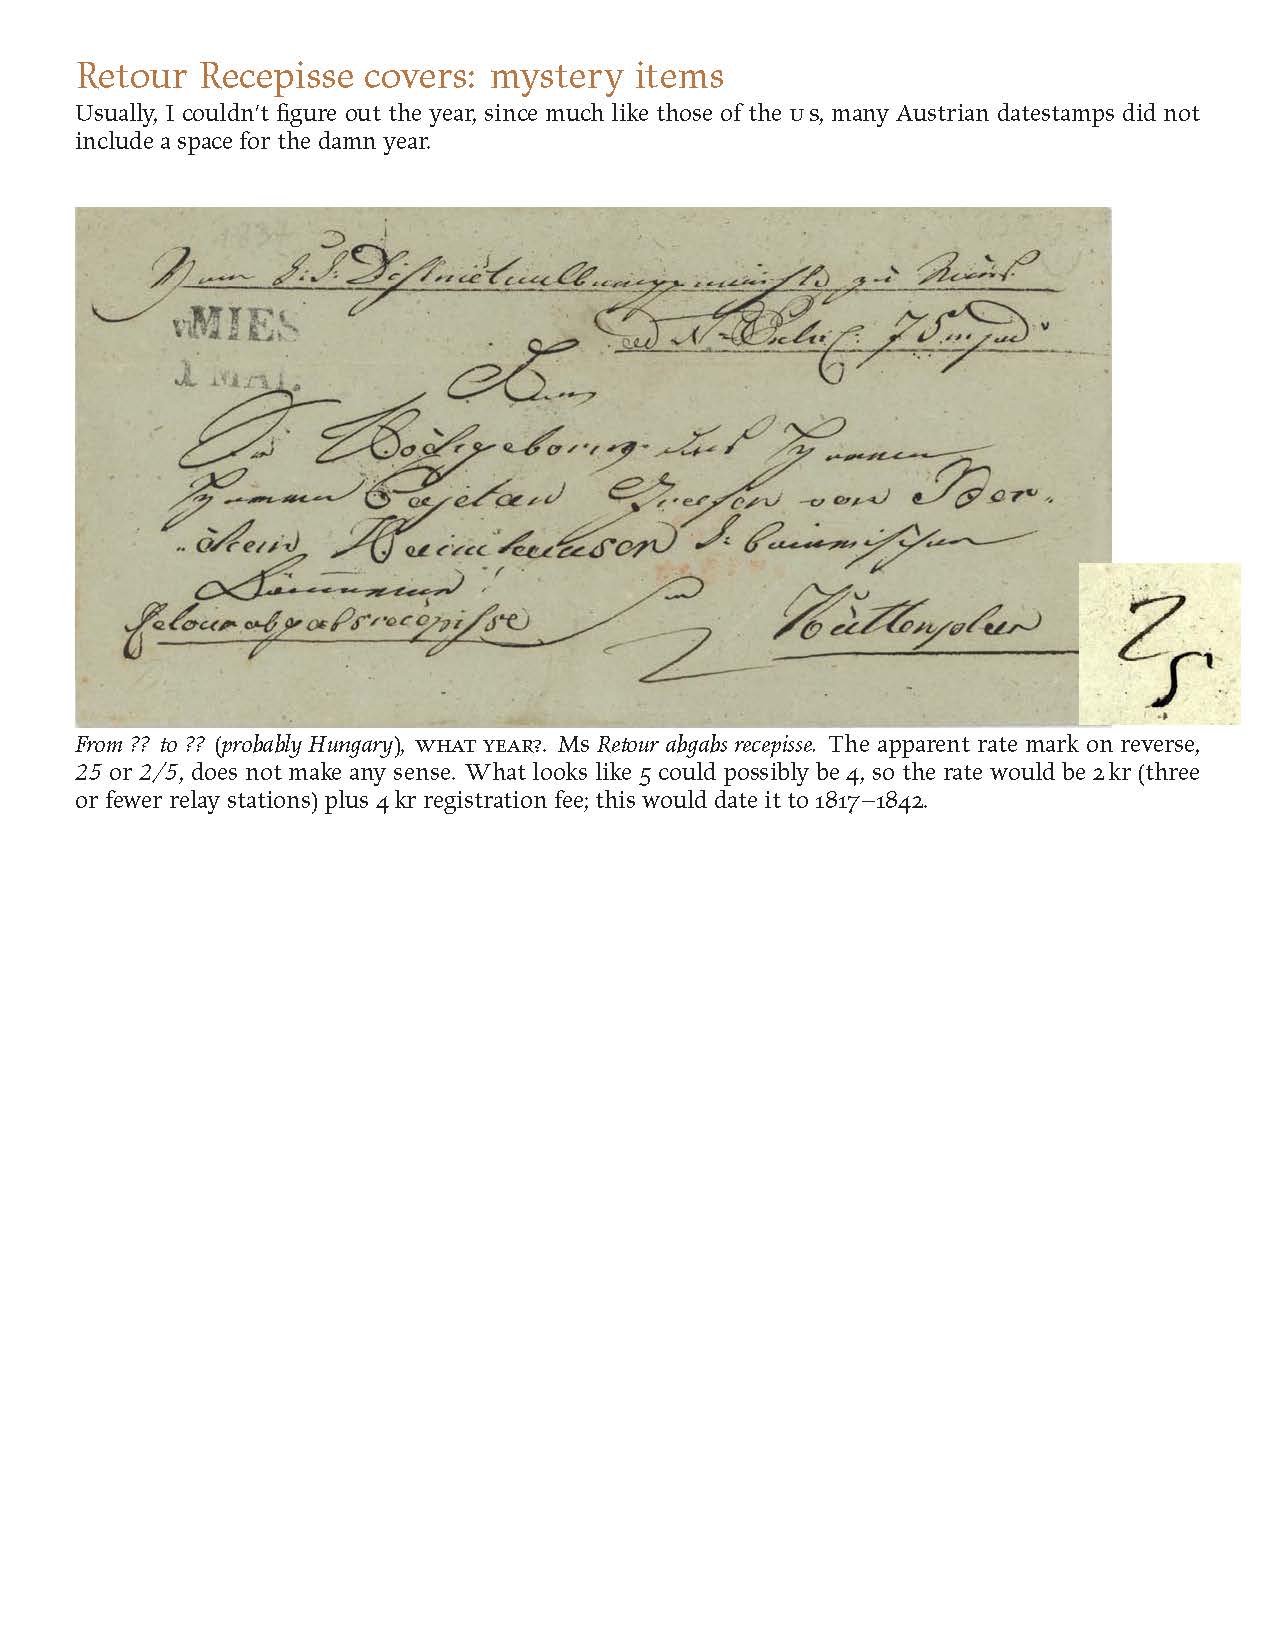 Retour Recepisse covers: mystery items
Usually, I couldn't figure out the year, since much like those of the US, many Austrian datestamps did not
include a space for the damn year.
1834
Vom zu
MIES
ad N
1 MAI.
Hochgeboren
Cajetan Grafen von Ber-
-chem Haimhausen
Retour abgabsrecepisse in Kuttenplan
2
5
From ?? to ?? (probably Hungary), WHAT YEAR?. Ms Retour abgabs recepisse. The apparent rate mark on reverse,
25 or 2/5, does not make any sense. What looks like 5 could possibly be 4, so the rate would be 2 kr (three
or fewer relay stations) plus 4 kr registration fee; this would date it to 1817–1842.